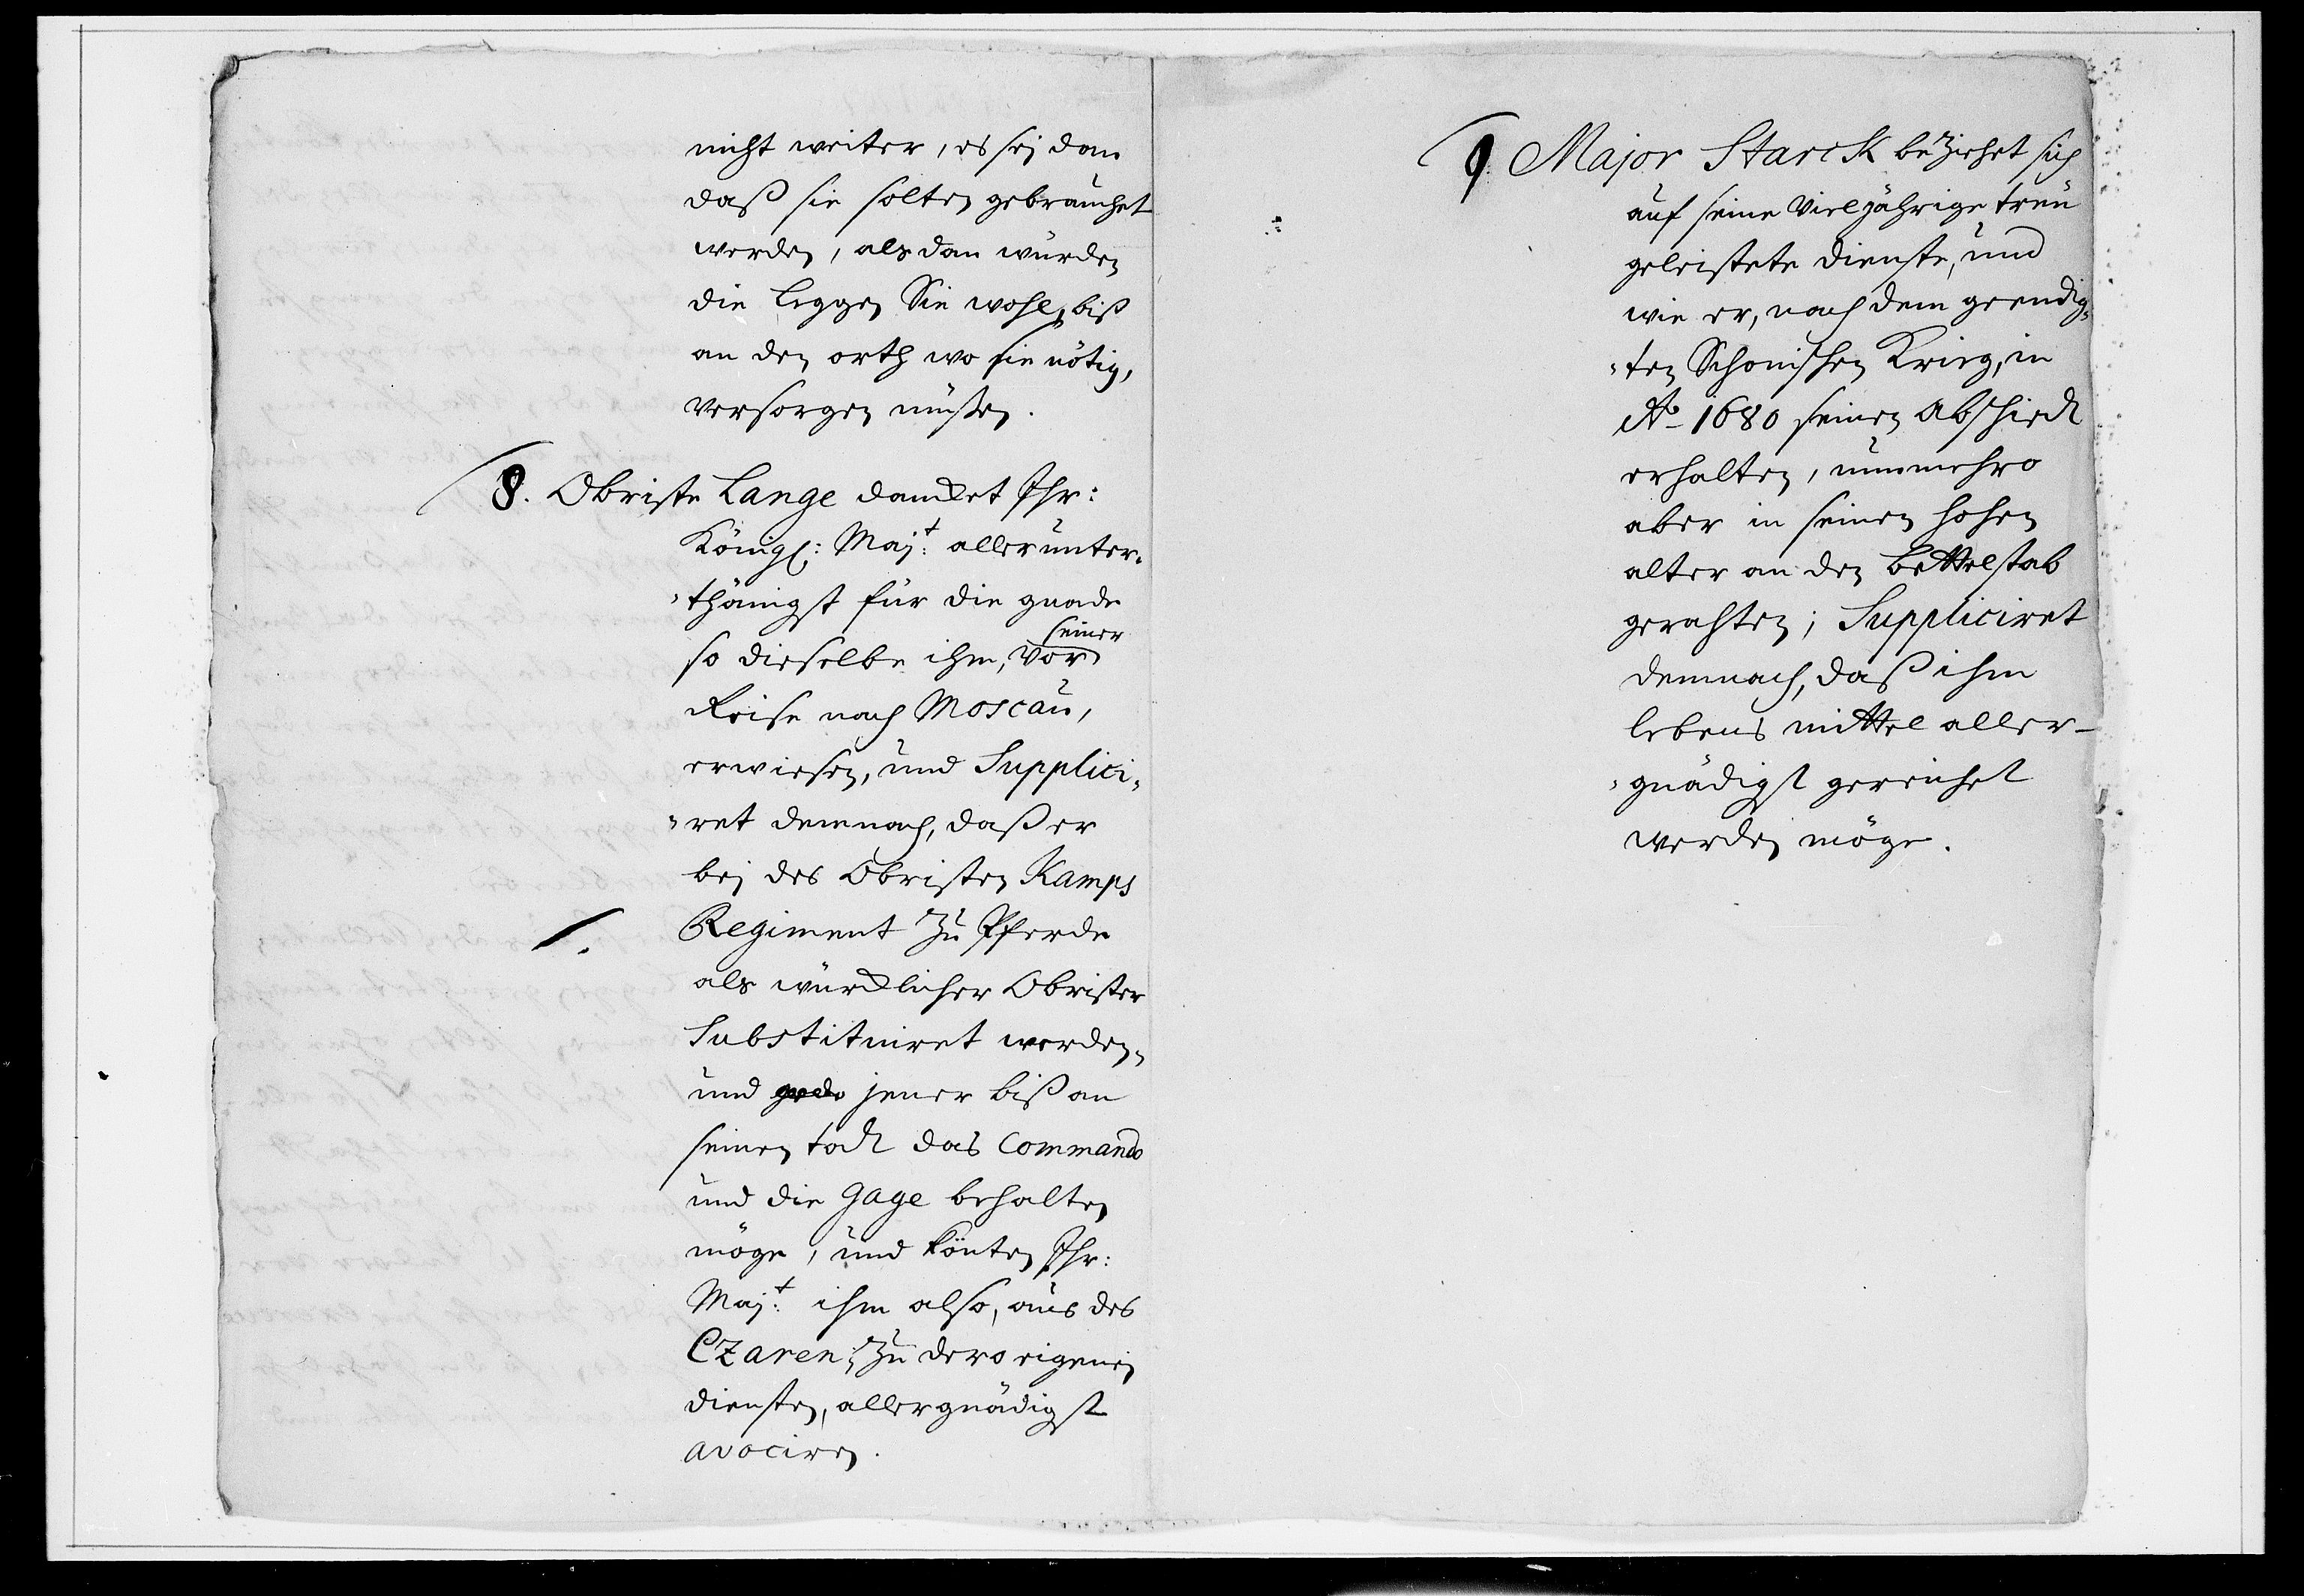 nicht weiter, es sej dan
daß sie solten gebrauchet
werden, als dan würden
die Leggen Sie wohl, biß
an den orth wo sie nötig,
versorgen müßen.
8. Obriste Lange dancket Ihr:
Königl: Majt: allerunter-
-thänigst für die gnade
so dieselbe ihm, vor seiner
Reise nach Moscau,
erwiesen, und Supplici-
-ret demnach, daß er
bej des Obristen Kamps
Regiment zu Pferde
als würcklicher Obrister
Substituiret werden,
und jener biß an
seinen todt das Commando
und die Gage behalten
möge, und könten Ihr:
Majt: ihm also, aus des
Czaren, zu dero eigenen
diensten, allergnädigst
avociren.
9. Major Starck beziehet sich
auf seine vieljährige treu
geleistete dienste, und
wie er, nach dem geendig-
-ten Schonischen Krieg, in
Ao 1680 seinen Abschiedt
erhalten, nunmehro
aber in seinen hohen
alter an den bettelstab
gerahten; Suppliciret
demnach, daß ihm
lebens mittel aller-
-gnädigst gereichet
werden möge.